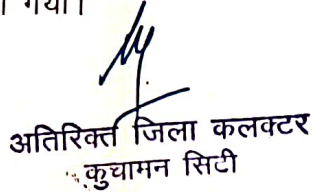 गया।
अतिरिक्त जिला कलक्टर
कुचामन सिटी